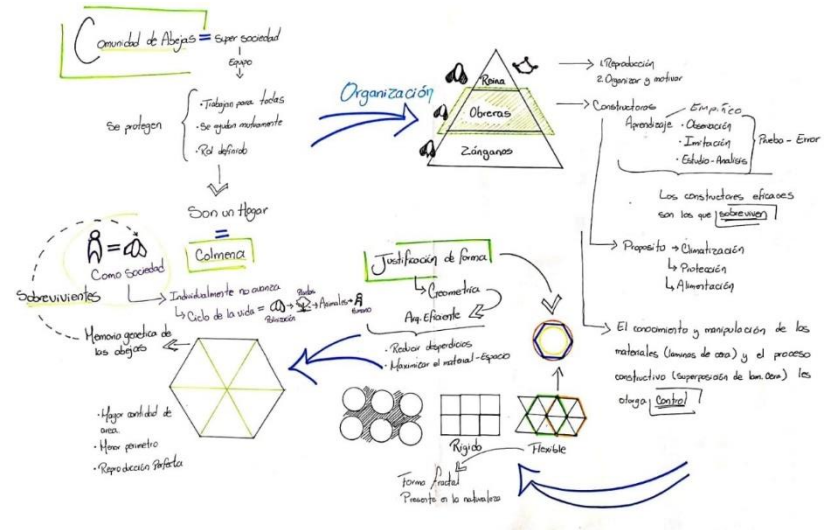 Comunidad de Abejas = Super sociedad
Equipo
Se protegen
· Trabajan para todas
· Se ayudan mutuamente
· Rol definido
Son un Hogar
=
Colmena
=
Como sociedad
Sobrevivientes
Individualmente no avanza
Ciclo de la vida =
Polinización
Plantas
Animales
Humano
Memoria genetica de
las abejas
· Mayor cantidad de
area.
· Menor perimetro
· Reproducción Perfecta
Organización
Reina
Obreras
Zánganos
1. Reproducción
2. Organizar y motivar
Constructoras
Aprendizaje
Empírico
· Observación
· Imitación
· Estudio - Analisis
Prueba - Error
Los constructores eficaces
son los que sobreviven
Proposito → Climatización
Protección
Alimentación
El conocimiento y manipulación de los
materiales (laminas de cera) y el proceso
constructivo (superposición de lam. cera) les
otorga Control
Justificación de forma
Geometría
Arq. Eficiente
· Reducir desperdicios
· Maximizar el material - Espacio
Rígido
Flexible
Forma fractal
Presente en la naturaleza